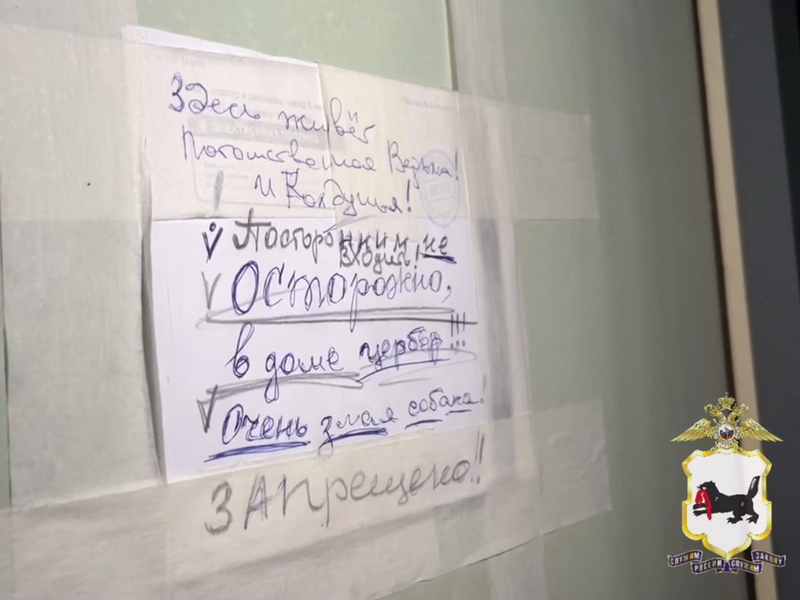 Здесь живёт
Потомственная Ведьма!
и Колдунья!
Посторонним не
входить!
Осторожно,
в доме цербер!!!
Очень злая собака!
ЗАПрещено!!
СЛУЖИМ РОССИИ СЛУЖИМ ЗАКОНУ